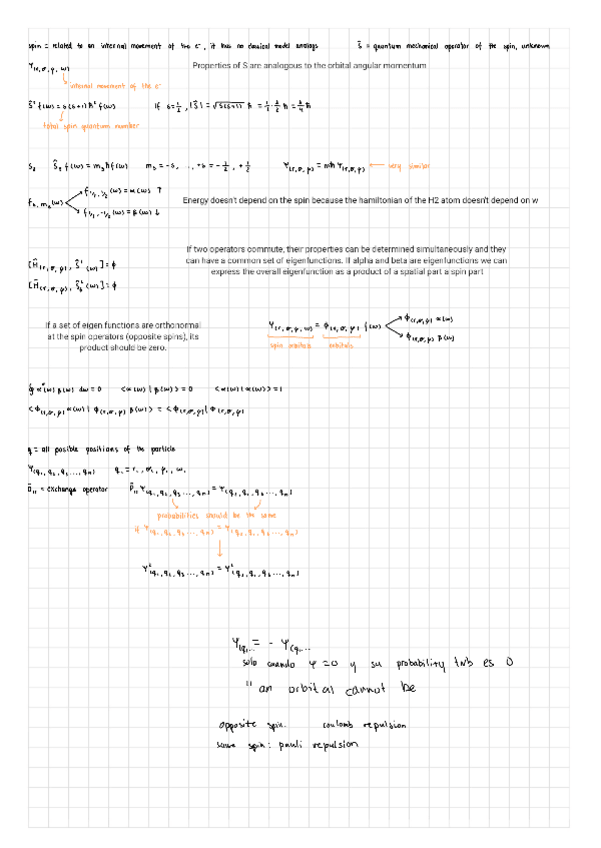 spin = related to an internal movement of the e⁻, it has no classical model analogs
Ŝ = quantum mechanical operator of the spin, unknown
Ψ(r,σ,φ,ω)
Properties of S are analogous to the orbital angular momentum
internal movement of the e⁻
Ŝ² f(ω) = s(s+1) ħ² f(ω) if s=½, |Ŝ| = √s(s+1) ħ
total spin quantum number
Ŝz f(ω) = ms ħ f(ω) ms = -s, ..., +s = -½, +½
very similar
fs,ms(ω)
f½,½(ω) = α(ω) ↑
f½,-½(ω) = β(ω) ↓
Energy doesn't depend on the spin because the hamiltonian of the H2 atom doesn't depend on w
If two operators commute, their properties can be determined simultaneously and they
can have a common set of eigenfunctions. If alpha and beta are eigenfunctions we can
express the overall eigenfunction as a product of a spatial part a spin part
[Ĥ(r,σ,φ), Ŝ²(ω)] = ϕ
[Ĥ(r,σ,φ), Ŝz(ω)] = ϕ
If a set of eigen functions are orthonormal
at the spin operators (opposite spins), its
product should be zero.
Ψ(r,σ,φ,ω) = ϕ(r,σ,φ) f(ω)
ϕ(r,σ,φ) α(ω)
ϕ(r,σ,φ) β(ω)
spin orbitals orbitals
α*(ω) β(ω) dω = 0 <α(ω) | β(ω)> = 0 <α(ω) | α(ω)> = 1
<ϕ(r,σ,φ) α(ω) | ϕ(r,σ,φ) β(ω)> = <ϕ(r,σ,φ) | ϕ(r,σ,φ)
q = all posible positions of the particle
Ψ(q₁, q₂, q₃ ..., qn) q₁ = r₁, σ₁, φ₁, ω₁
= exchange operator
probabilities should be the same
if
Ψ(q₁.. = - Ψ(q...
solo cuando Ψ=0 y su probability tmb es 0
" an orbital cannot be
opposite spin: coulomb repulsion
same spin: pauli repulsion